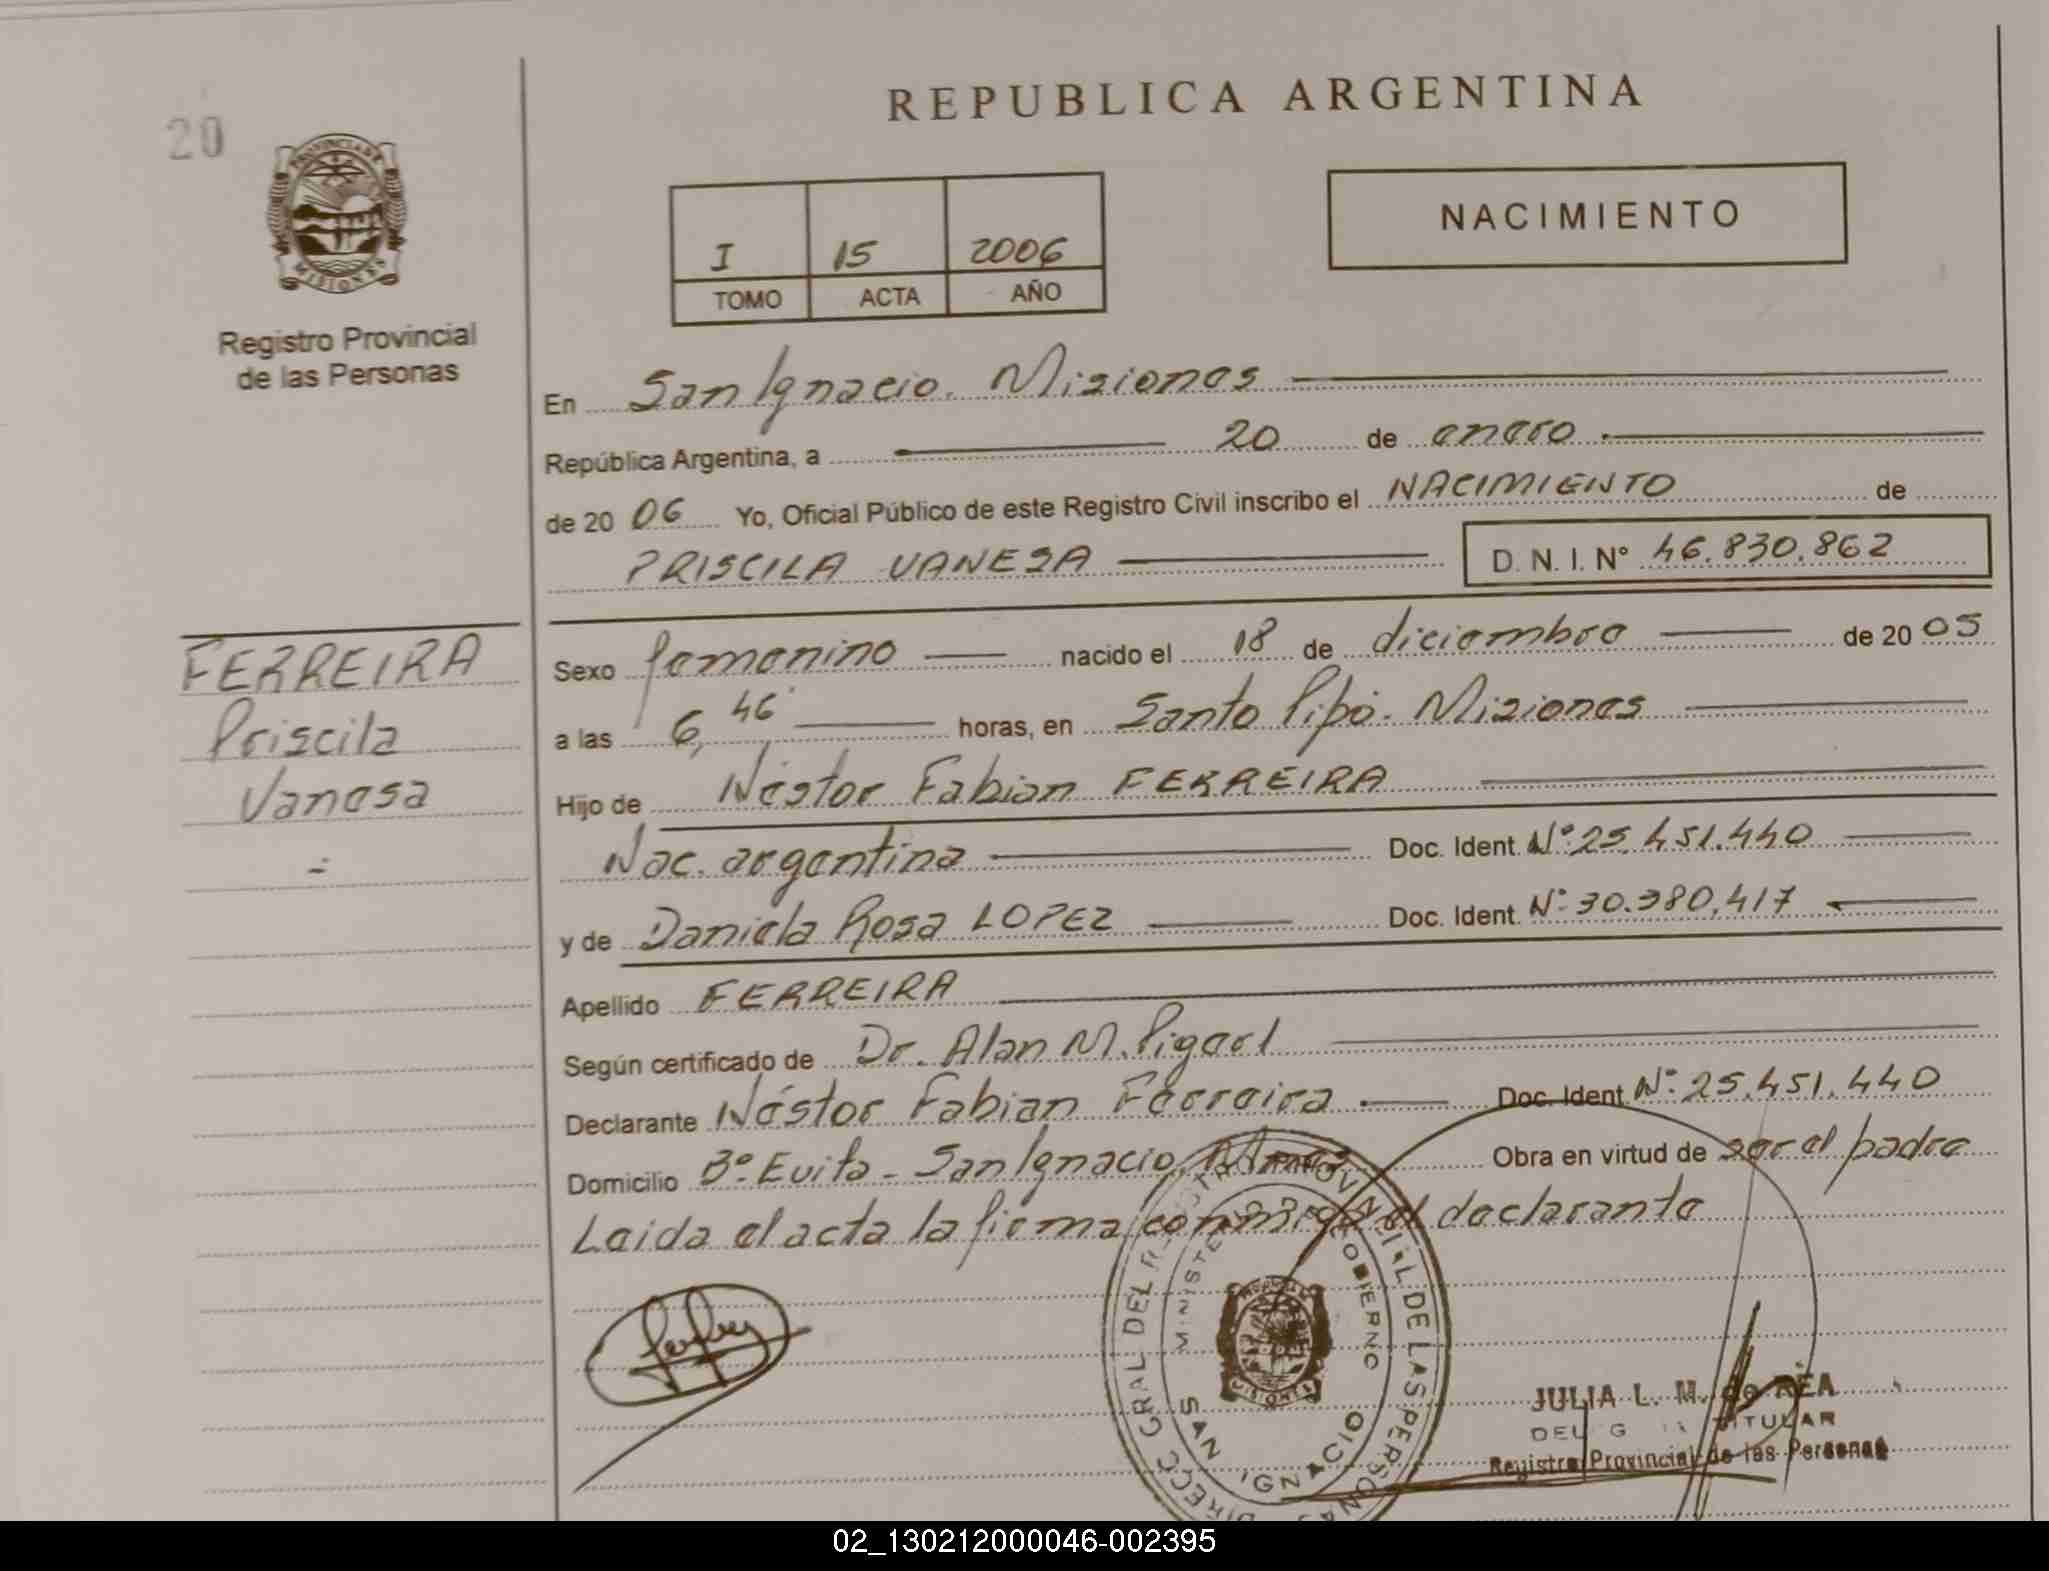 20
PROVINCIA DE
MISIONES
Registro Provincial
de las Personas
REPUBLICA ARGENTINA
I 15 2006
TOMO ACTA AÑO
NACIMIENTO
En San Ignacio. Misiones
República Argentina, a 20 de enero
de 2006 Yo, Oficial Público de este Registro Civil inscribo el NACIMIENTO de
PRISCILA VANESA D. N. I. N° 46.830.862
FERREIRA
Priscila
Vanesa
Sexo femenino nacido el 18 de diciembre de 2005
a las 6,46 horas, en Santo Pipó. Misiones
Hijo de Néstor Fabian FERREIRA
Nac. argentina Doc. Ident. N° 25.451.440
y de Daniela Rosa LOPEZ Doc. Ident. N° 30.380.417
Apellido FERREIRA
Según certificado de Dr. Alan M.
Declarante Néstor Fabian Ferreira Doc. Ident. N° 25.451.440
Domicilio B° Evita - San Ignacio, Mnes Obra en virtud de ser el padre
Leida el acta la firma conmigo el declarante
DIRECC GRAL DEL REGISTRO PROVINCIAL DE LAS PERSONAS
MINISTERIO DE GOBIERNO
MISIONES
SAN IGNACIO
JULIA L. M. de REA
TITULAR
Registro Provincial de las Personas
02_130212000046-002395